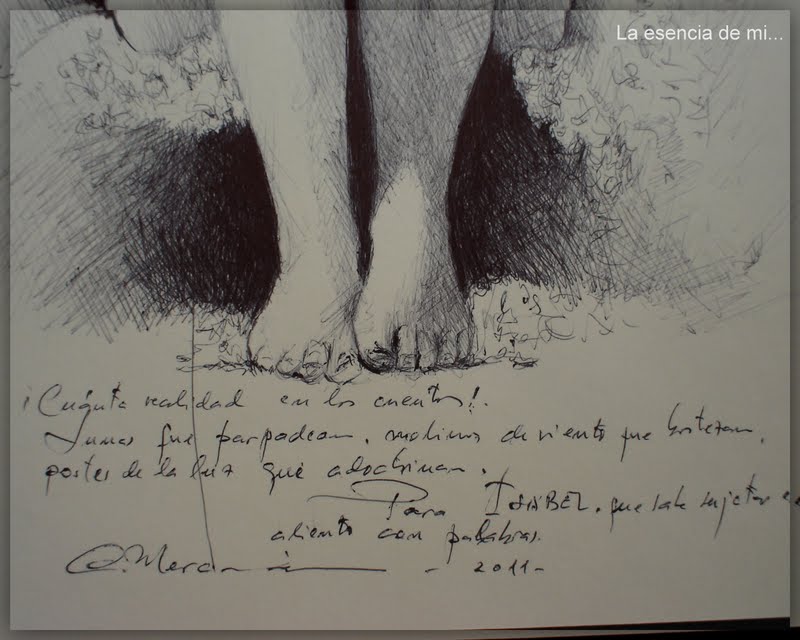 La esencia de mi...
¡Cuánta realidad en los cuentos!.
Lunas que parpadean, molinos de viento que bostezan,
postes de la luz que adoctrinan.
Para ISABEL, que sabe sujetar
aliento con palabras.
- 2011-